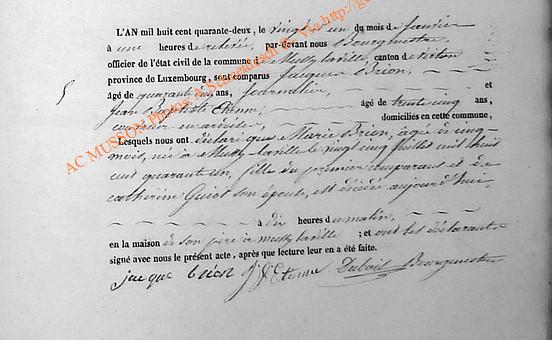 5
L'AN mil huit cent quarante-deux, le vingt un du mois de Janvier
à une heures de relevée, par-devant nous Bourgmestre
officier de l'état civil de la commune de Mussy la ville canton de Virton
province de Luxembourg, sont comparus Jacques Brion,
âgé de quarante ans, journalier et
Jean Baptiste Etienne âgé de trente cinq ans,
couvreur en ardoise domiciliés en cette commune
Lesquels nous ont déclaré que Marie Brion, agée de cinq
mois, née à Mussy la ville le vingt cinq Juillet mil huit
cent quarante un, fille du premier comparant et de
catherine Guiot son épouse, est décédée aujourd'hui,
à dix heures du matin,
en la maison de son père à mussy la ville ; et ont les déclarants
signé avec nous le présent acte, après que lecture leur en a été faite.
jacque brion J B Etienne Dubois Bourgmestre
AC MUSSON Photos: A Schneidesch Via http://g